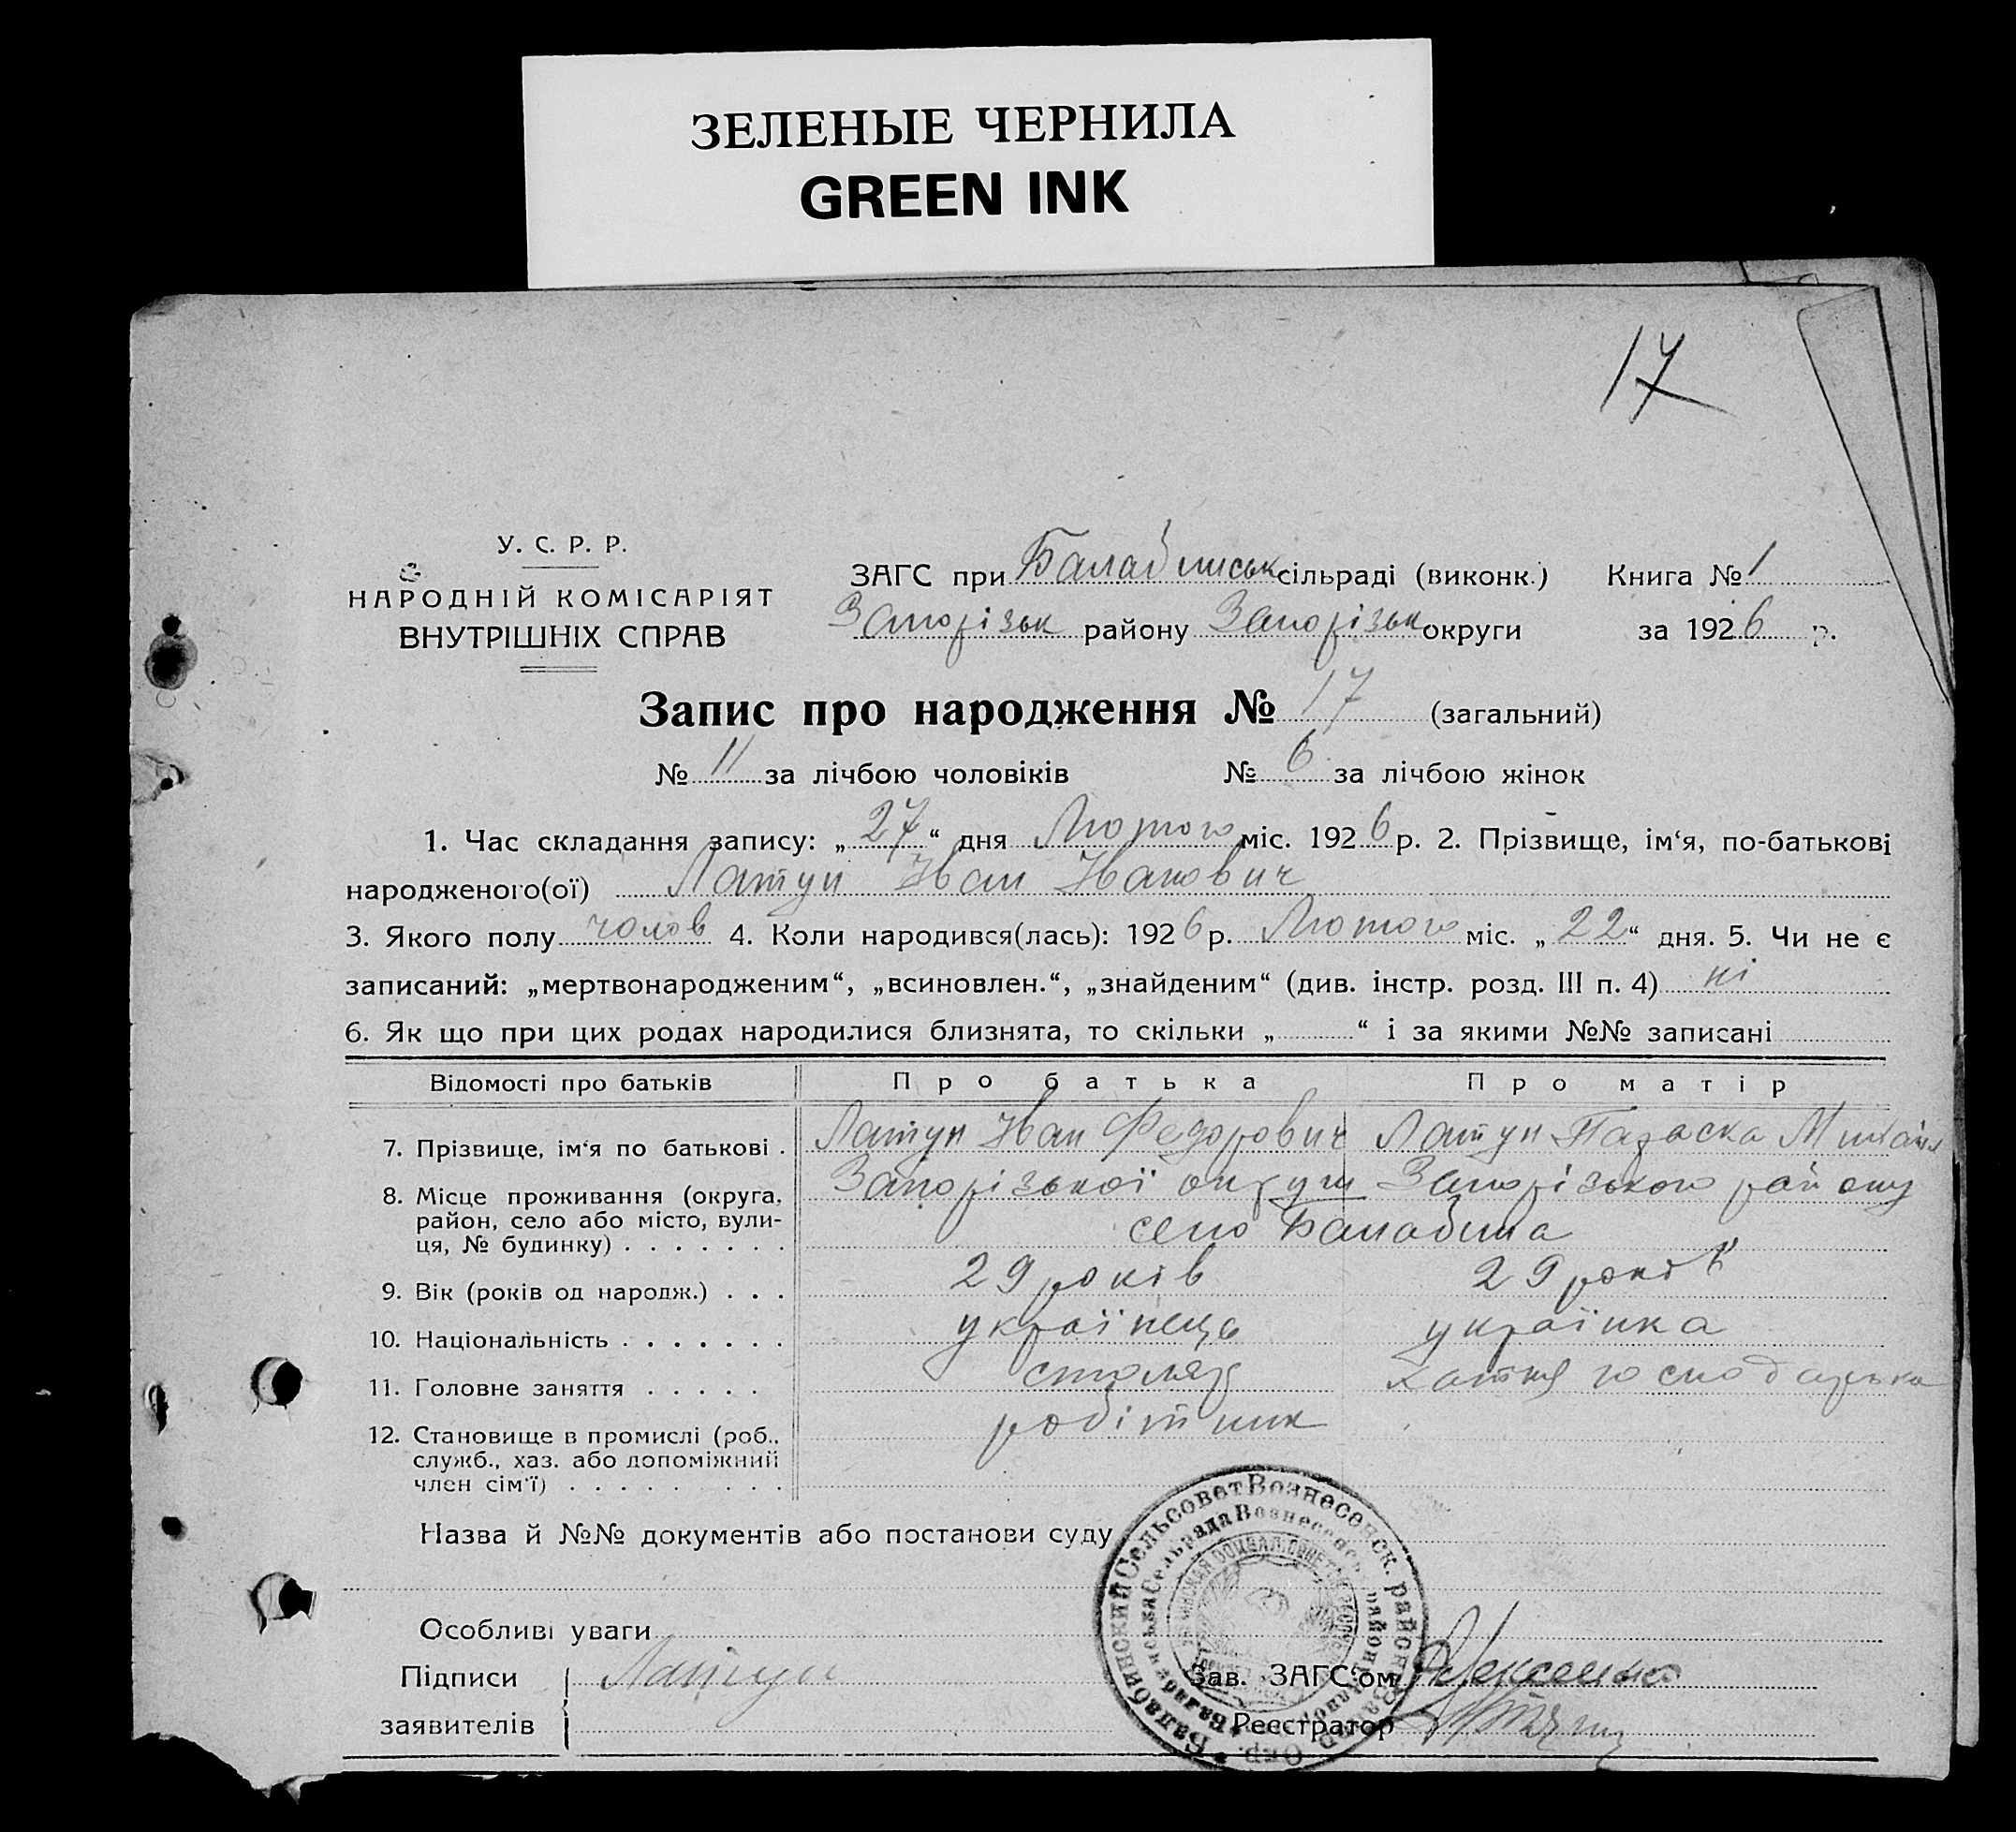 ЗЕЛЕНЫЕ ЧЕРНИЛА
GREEN INK
17
У. С. Р. Р.
НАРОДНІЙ КОМІСАРІЯТ
ВНУТРІШНІХ СПРАВ
ЗАГС при Балабинськ сільраді (виконк.) Книга № 1
Запорізьк району Запорізьк округи за 1926 р.
Запис про народження № 17 (загальний)
№ 11 за лічбою чоловіків № 6 за лічбою жінок
1. Час складання запису: „27“ дня Лютого міс. 1926 р. 2. Прізвище, ім‘я, по-батькові
народженого(ої) Латун Іван Іванович
3. Якого полу чолов 4. Коли народився(лась): 1926 р. Лютого міс. „22“ дня. 5. Чи не є
записаний: „мертвонародженим“, „всиновлен.“, „знайденим“ (див. інстр. розд. III п. 4) ні
6. Як що при цих родах народилися близнята, то скільки „ “ і за якими №№ записані
Відомості про батьків Про батька Про матір
7. Прізвище, ім‘я по батькові . Латун Іван Федорович Латун Параска Михайл
8. Місце проживання (округа, Запорізької округи Запорізького району
район, село або місто, вули-
ця, № будинку) . . . . . . . село Балабина
9. Вік (років од народж.) . . . 29 років 29 років
10. Національність . . . . . . . українець українка
11. Головне заняття . . . . . столяр хатня господарька
12. Становище в промислі (роб., робітник
служб., хаз. або допоміжний
член сім‘ї) . . . . . . . . .
Назва й №№ документів або постанови суду
Особливі уваги
Підписи Латун Зав. ЗАГС‘ом
заявителів Реєстратор
Балабинский Сельсовет Вознесенск. района Запор. Окр.